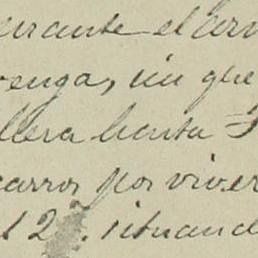 durante el
venga, sin que
llera hasta
carros por viver
12. situand